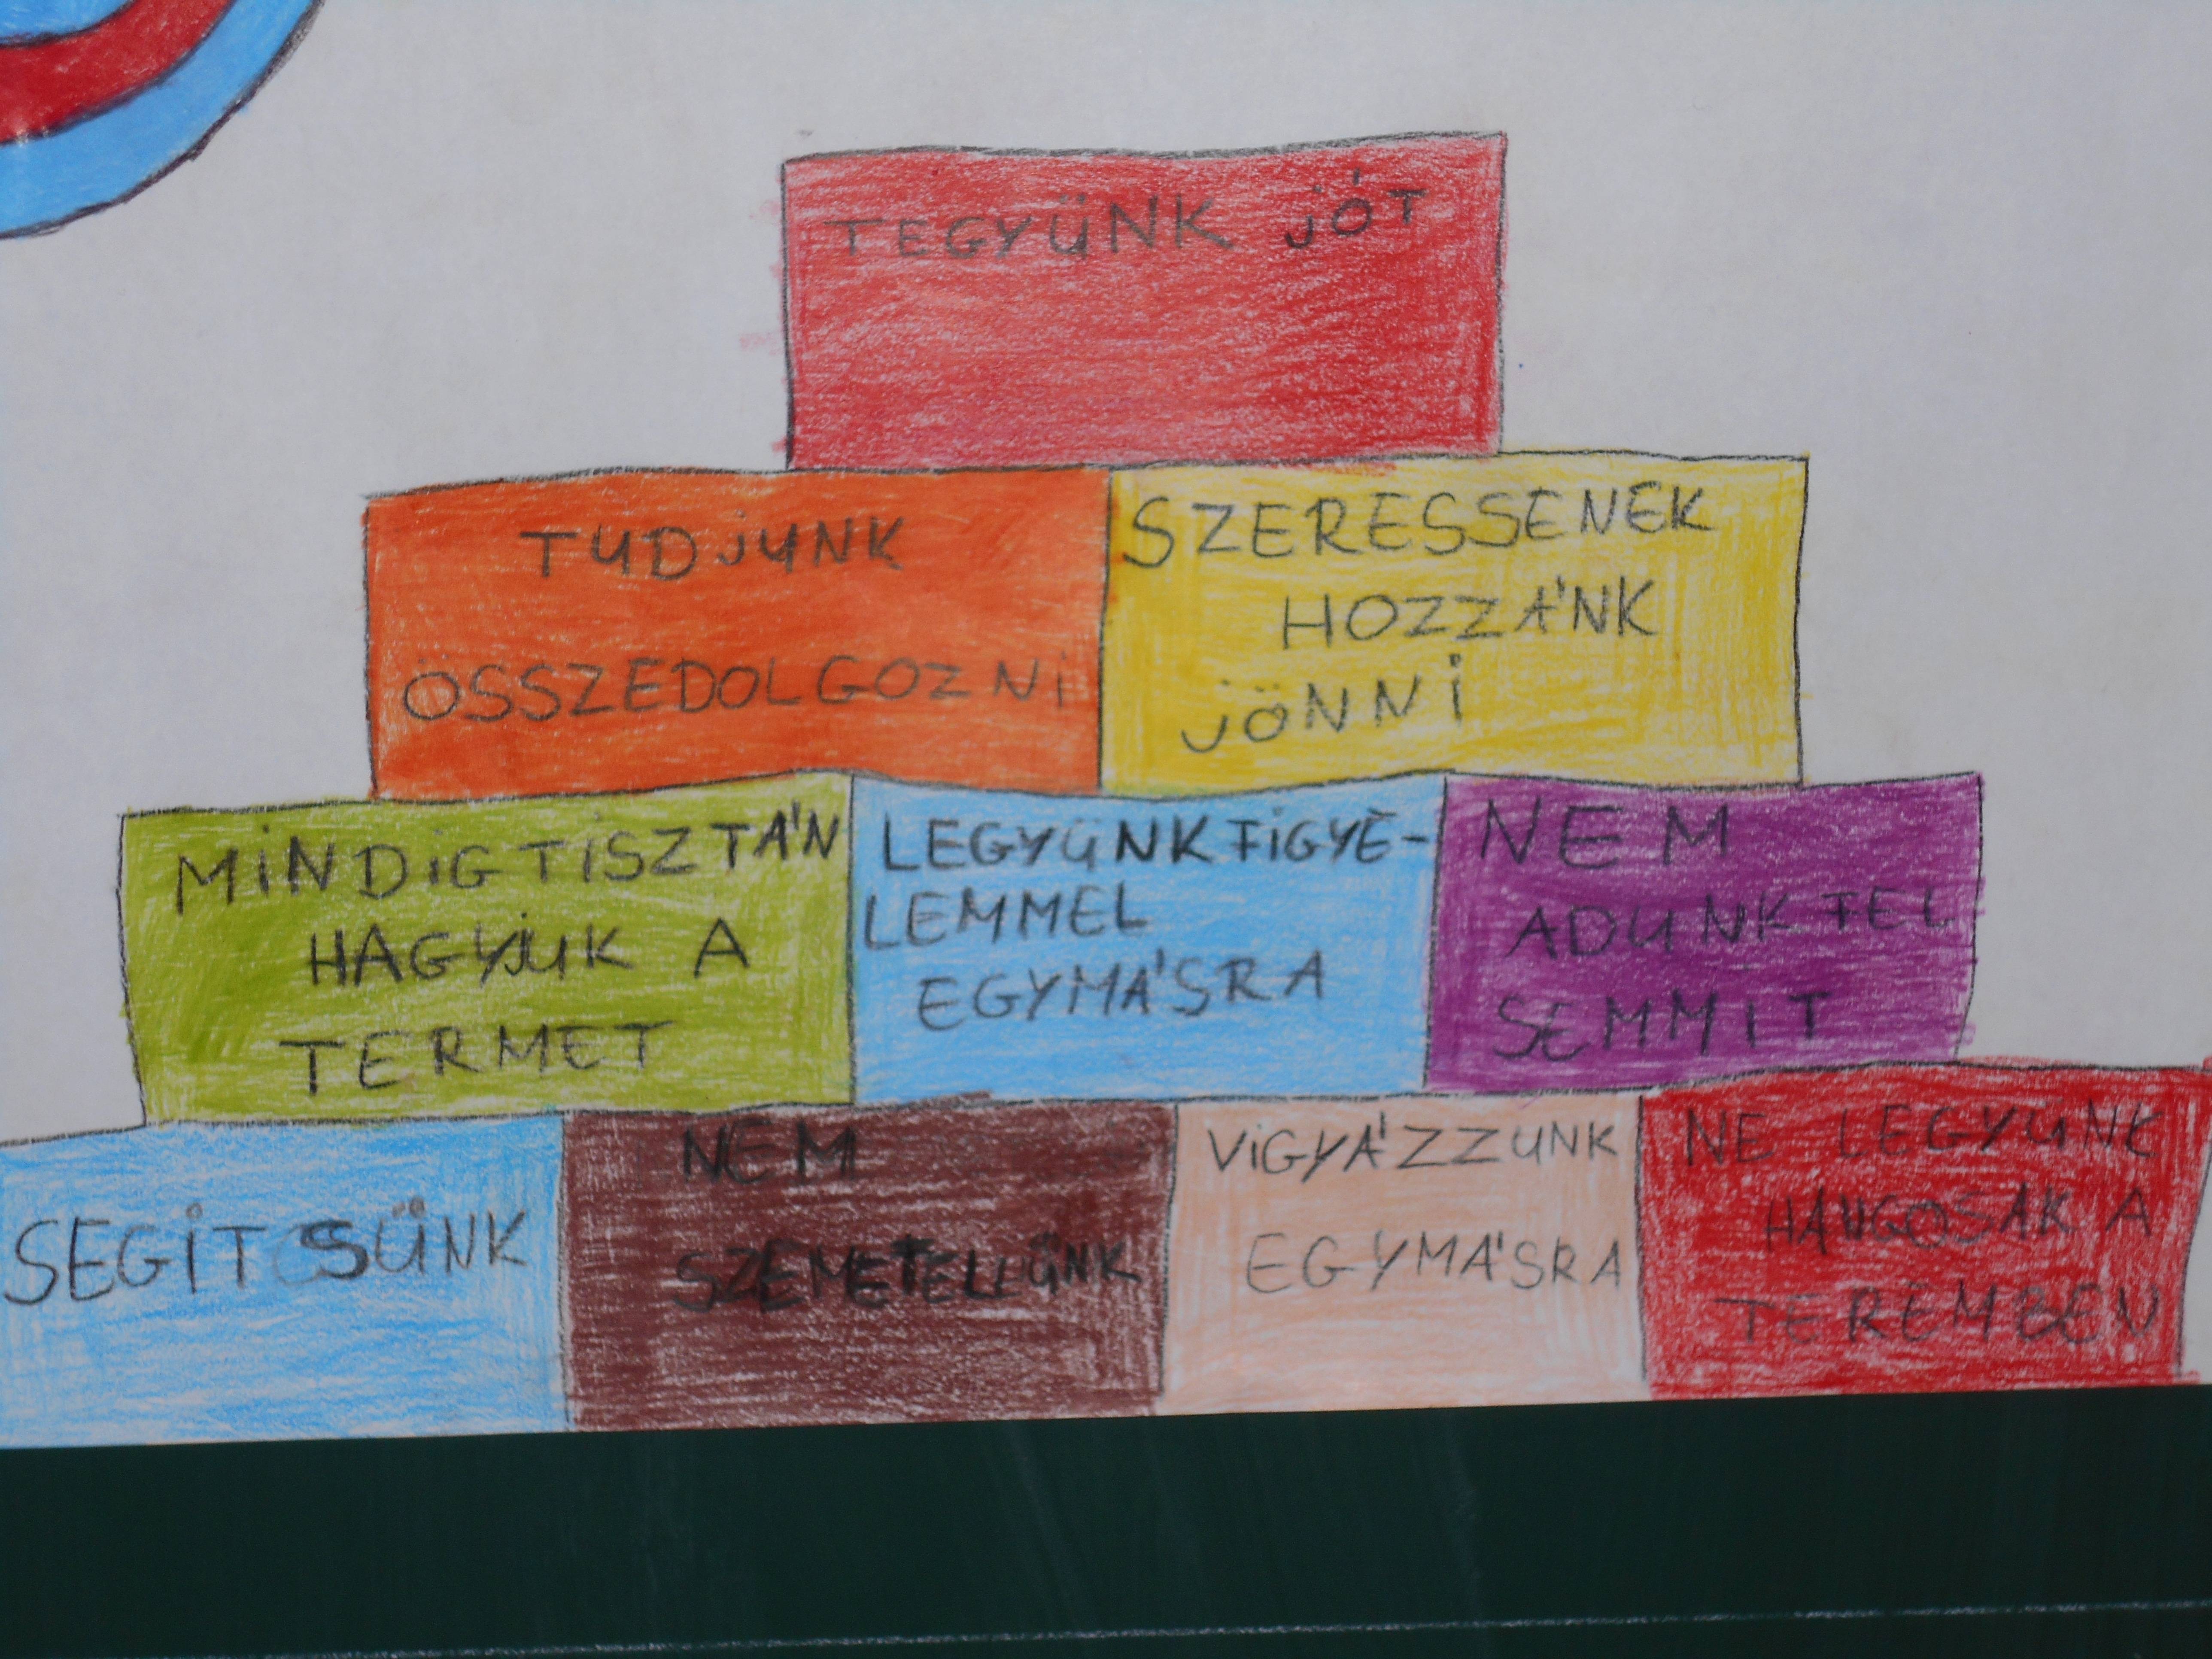 TEGYÜNK JÓT
TUDJUNK
ÖSSZEDOLGOZNI
SZERESSENEK
HOZZÁNK
JÖNNI
MINDIG TISZTÁN
HAGYJUK A
TERMET
LEGYÜNK FIGYE-
LEMMEL
EGYMÁSRA
NEM
ADUNK FEL
SEMMIT
SEGÍTSÜNK
NEM
SZEMETELÜNK
VIGYÁZZUNK
EGYMÁSRA
NE LEGYÜNK
HANGOSAK A
TEREMBEN